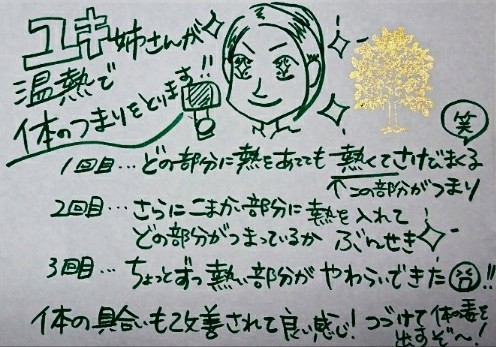 ユキ姉さんが
温熱で
体のつまりをとります!!
笑
1回目…どの部分に熱をあてても熱くてさけびまくる
↑この部分がつまり
2回目…さらにこまか部分に熱を入れて
どの部分がつまっているか ぶんせき
3回目…ちょっとずつ熱い部分が やわらいできた!!
体の具合いも改善されて良い感じ!つづけて体の毒を
出すぞ〜!